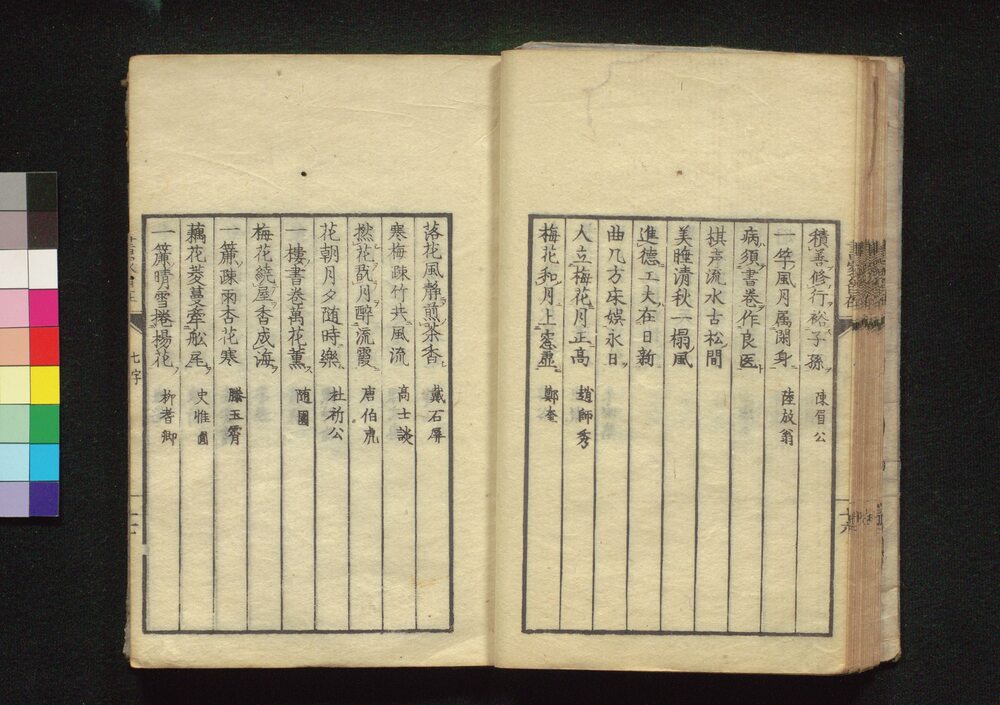 積善修行裕子孫 陳眉公
一竿風月属閑身 陸放翁
病須書卷作良医
棋声流水古松間
美睡清秋一榻風
進德工夫在日新
曲几方床娯永日
人立梅花月正高 趙師秀
梅花和月上窓虚 鄭奎
落花風静煎茶香 戴石屏
寒梅疎竹共風流 高士談
撚花翫月醉流霞 唐伯虎
花朝月夕随時樂 杜祁公
一樓書卷萬花薫 随園
梅花繞屋香成海
一簾疎雨杏花寒 滕玉霄
藕花菱蔓牽舩尾 史惟圓
一簾晴雪捲楊花 柳耆卿
七字